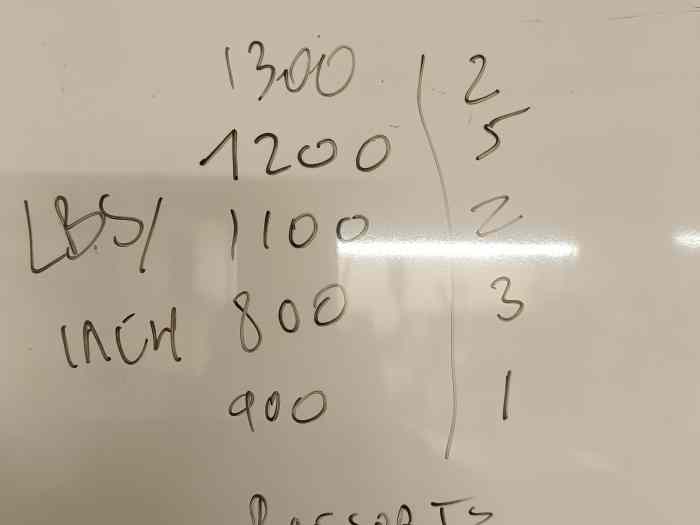 1300 2
1200 5
LBS/ 1100 2
INCH 800 3
900 1